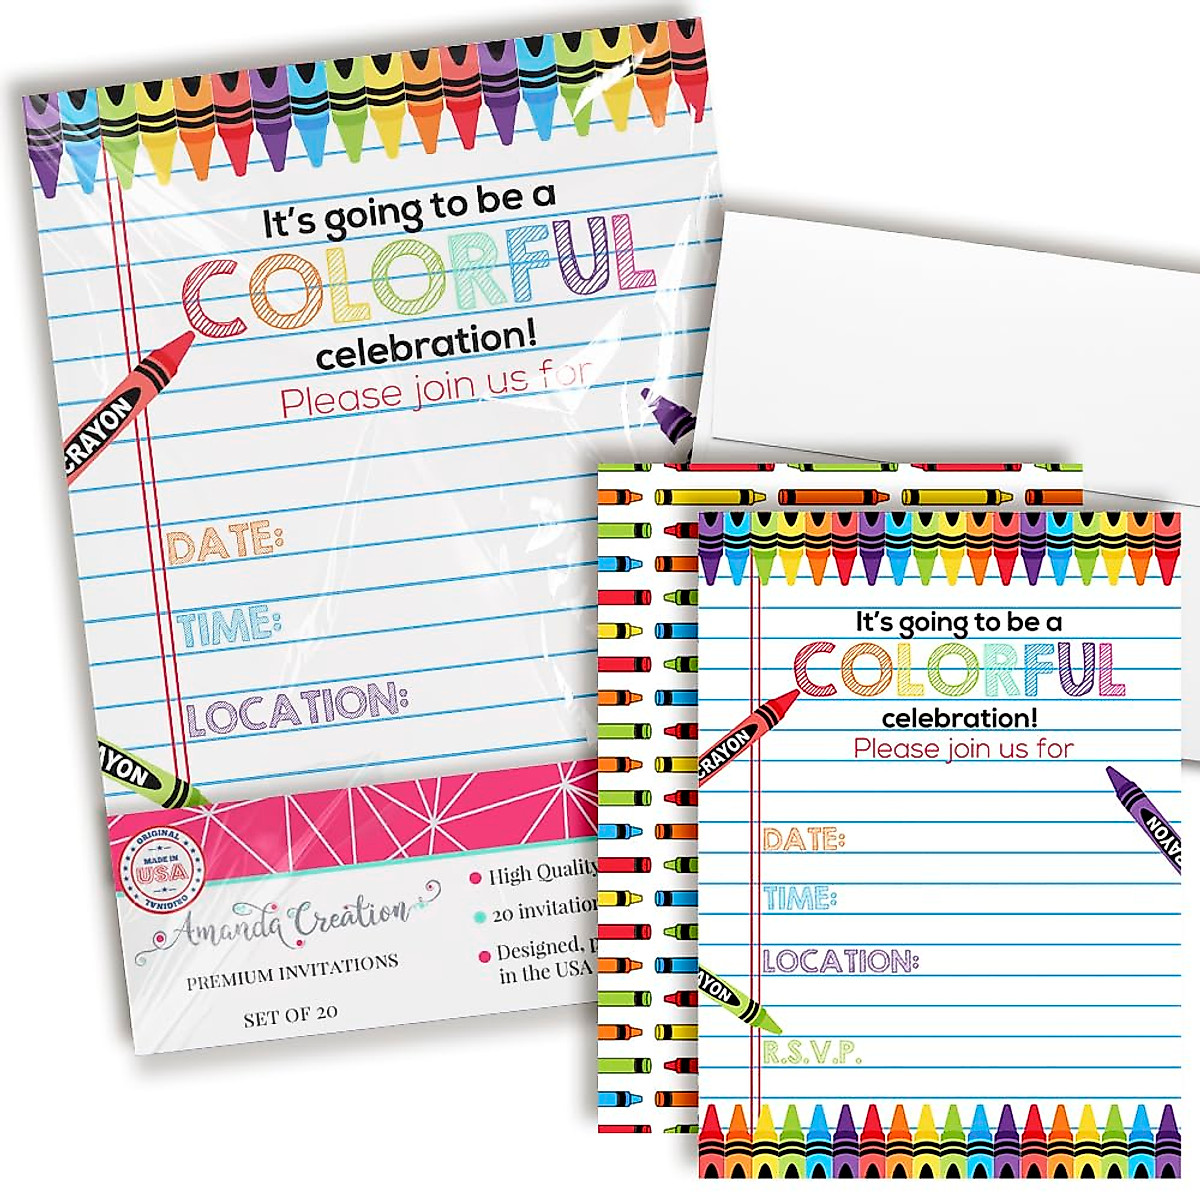 It's going to be a
COLORFUL
celebration!
Please join us for
CRAYON
DATE:
TIME:
LOCATION:
AYON
ORIGINAL
MADE IN
USA
ORIGINAL
Amanda Creation
PREMIUM INVITATIONS
SET OF 20
High Quality
20 invitation
Designed, p
in the USA
It's going to be a
COLORFUL
celebration!
Please join us for
CRAYON
DATE:
TIME:
LOCATION:
R.S.V.P.
AYON
AYON